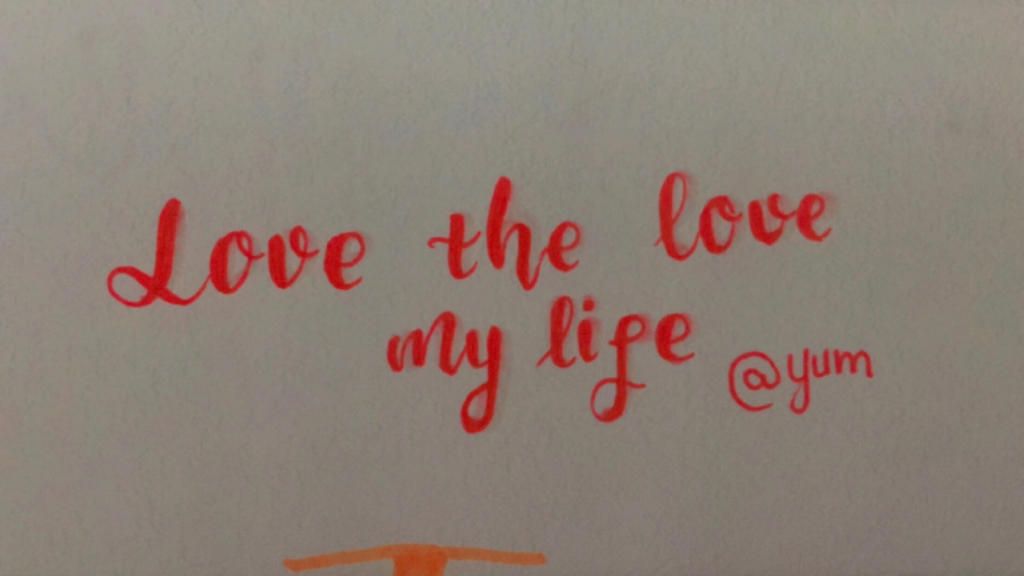 Love the love
my life @yum